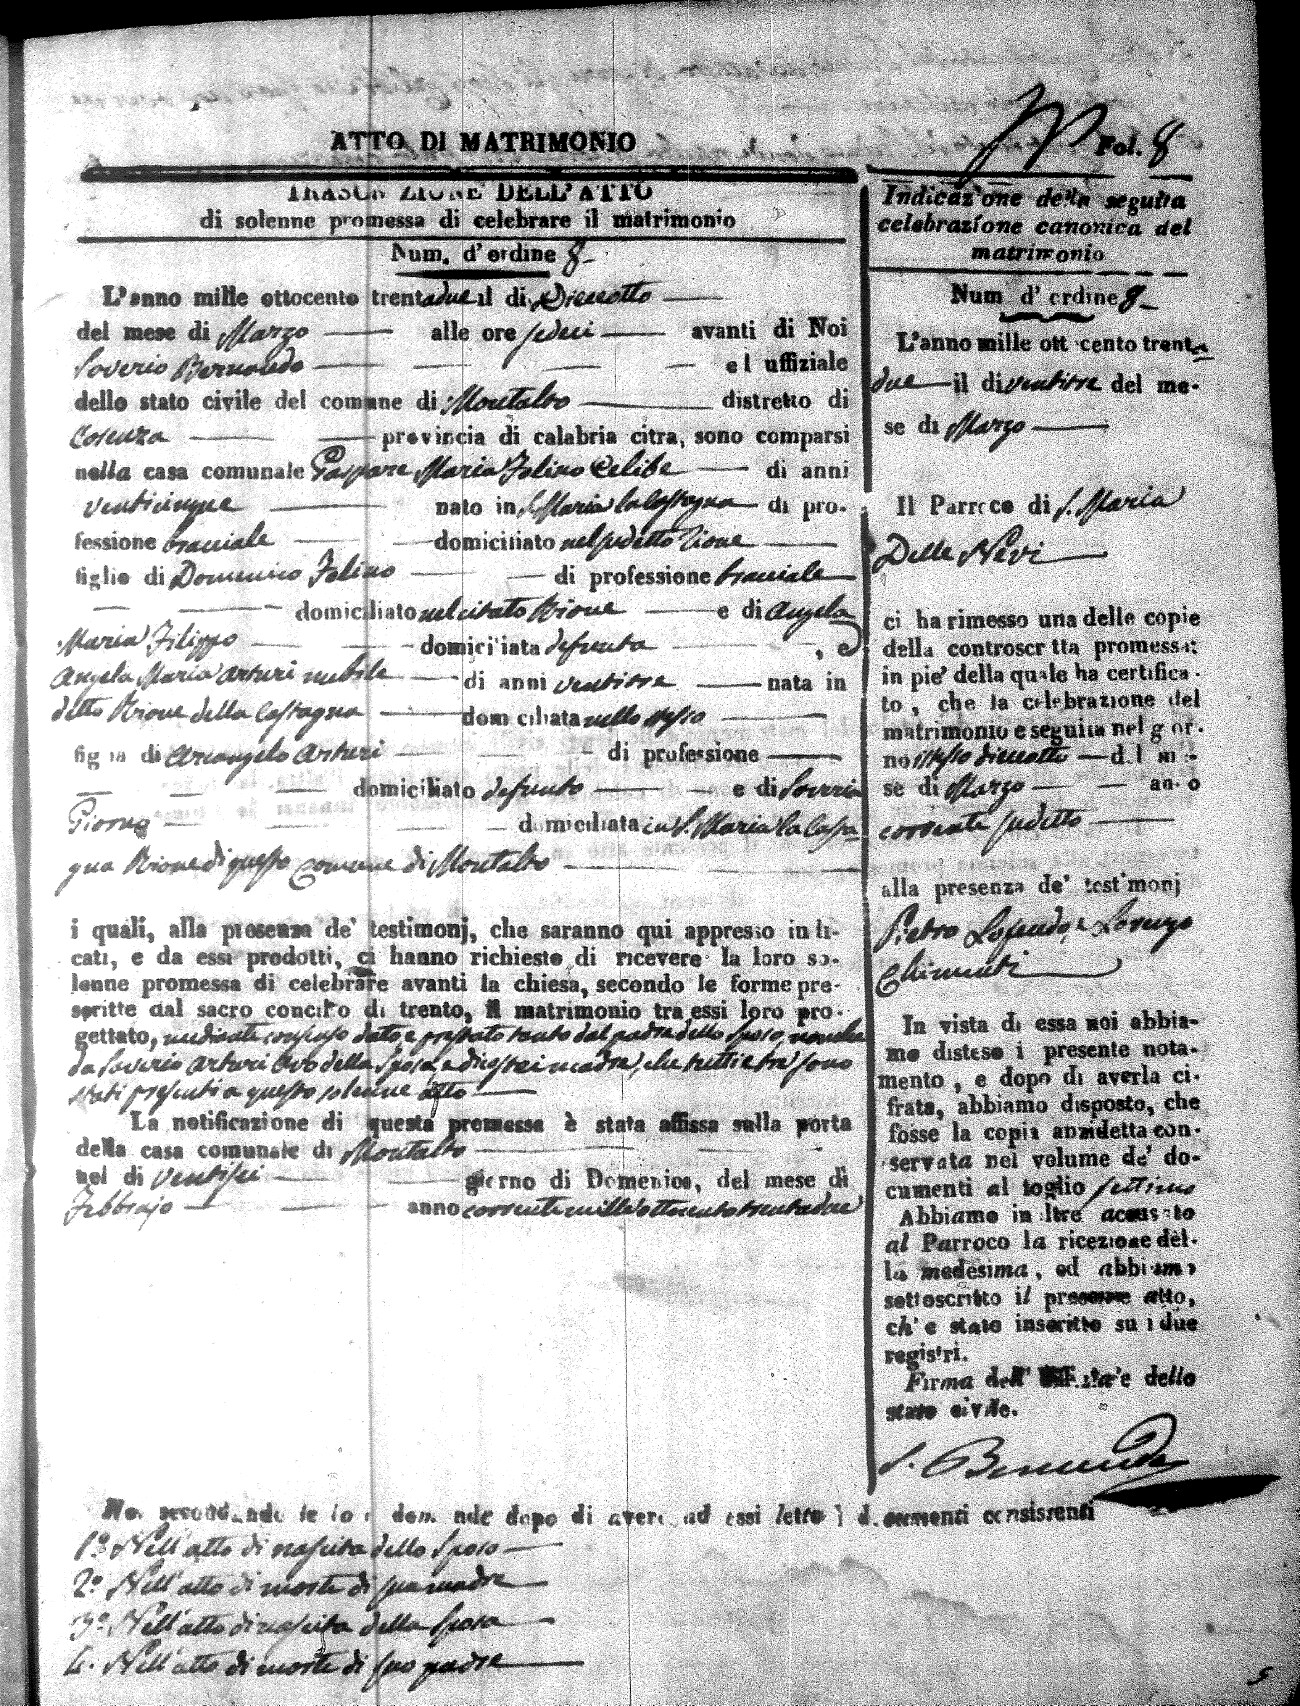 ATTO DI MATRIMONIO
Fol. 8
TRASCRIZIONE DELL'ATTO
di solenne promessa di celebrare il matrimonio
Num. d'ordine 8
L'anno mille ottocento trentadue il di Dieciotto
del mese di Marzo alle ore sedici avanti di Noi
Saverio Bernardo ed uffiziale
dello stato civile del comune di Montalto distretto di
Cosenza provincia di calabria citra, sono comparsi
nella casa comunale Gaspare Maria Folino Celibe di anni
venticinque nato in S. Maria la Castagna di pro-
fessione bracciale domiciliato nel sudetto Rione
figlio di Domenico Folino di professione bracciale
domiciliato nel citato Rione e di Angela
Maria Filippo domiciliata defunta , e
Angela Maria Arturi nubile di anni ventitre nata in
detto Rione della Castagna domiciliata nello stesso
figlia di Arcangelo Arturi di professione
domiciliato defunto e di Saveria
Giorno domiciliata in S. Maria la Casta
gna Rione di questo Comune di Montalto
i quali, alla presenza de' testimonj, che saranno qui appresso indi-
cati, e da essi prodotti, ci hanno richiesto di ricevere la loro so-
lenne promessa di celebrare avanti la chiesa, secondo le forme pre-
scritte dal sacro concilio di trento, il matrimonio tra essi loro pro-
gettato, mediante consenso dato e prestato tanto dal padre dello Sposo, nonche
da Saverio Arturi Avo della Sposa, e di questei madre, che tutti e tre sono
stati presenti a questo solenne atto
La notificazione di questa promessa è stata affissa sulla porta
della casa comunale di Montalto
nel di ventisei giorno di Domenica, del mese di
Febbrajo anno corrente mille ottocento trentadue
No. secondando le loro domande dopo di avere ad essi letto i documenti consistenti
1º Nell'atto di nascita dello Sposo
2º Nell'atto di morte di sua madre
3º Nell'atto di nascita della Sposa
4. Nell'atto di morte di suo padre
Indicazione della seguita
celebrazione canonica del
matrimonio
Num d'ordine 8
L'anno mille ottocento trenta
due il di ventitre del me-
se di Marzo
Il Parroco di S. Maria
Delle Nevi
ci ha rimesso una delle copie
della controscritta promessa;
in pie' della quale ha certifica-
to, che la celebrazione del
matrimonio e seguita nel gior-
no stesso dieciotto del me-
se di Marzo anno
corrente sudetto
alla presenza de' testimonj
Pietro Lofendo, e Lorenzo
Chimenti
In vista di essa noi abbia-
mo disteso i presente nota-
mento, e dopo di averla ci-
frata, abbiamo disposto, che
fosse la copia anzidetta con-
servata nel volume de' do-
cumenti al foglio settimo
Abbiamo in oltre accusato
al Parroco la ricezione del-
la medesima, ed abbiamo
sottoscritto il presente atto,
ch'e stato inscritto su i due
registri.
Firma dell' Uffiziale dello
stato civile.
S. Bernardo